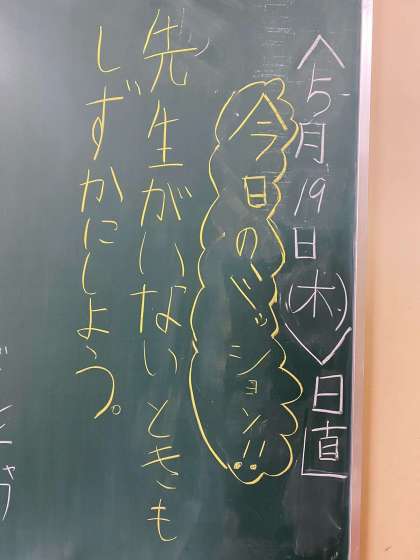 〈5月19日(木)〉日直
今日のミッション!!
先生がいないときも
しずかにしよう。